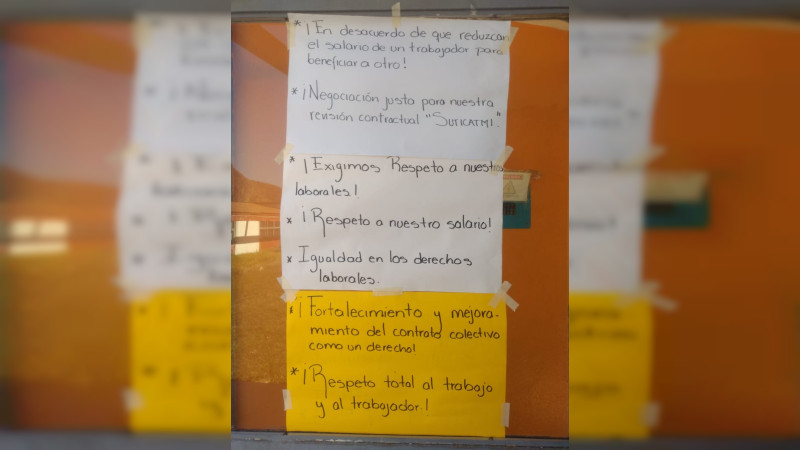 * ¡En desacuerdo de que reduzcan
el salario de un trabajador para
beneficiar a otro!
* ¡Negociación justa para nuestra
revisión contractual "SUTICATMI".
* ¡Exigimos Respeto a nuestros
laborales!
* ¡Respeto a nuestro salario!
* Igualdad en los derechos
laborales.
* ¡Fortalecimiento y mejora-
miento del contrato colectivo
como un derecho!
* ¡Respeto total al trabajo
y al trabajador!